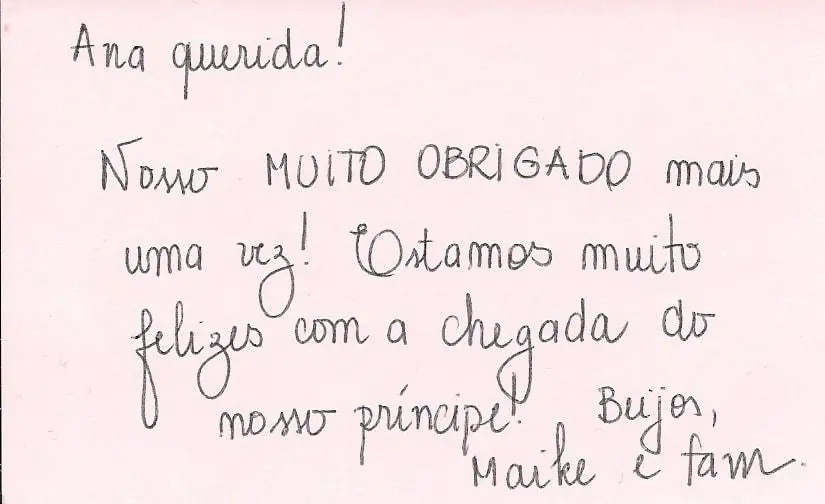 Ana querida!
Nosso MUITO OBRIGADO mais
uma vez! Estamos muito
felizes com a chegada do
nosso príncipe! Beijos,
Maike e fam.